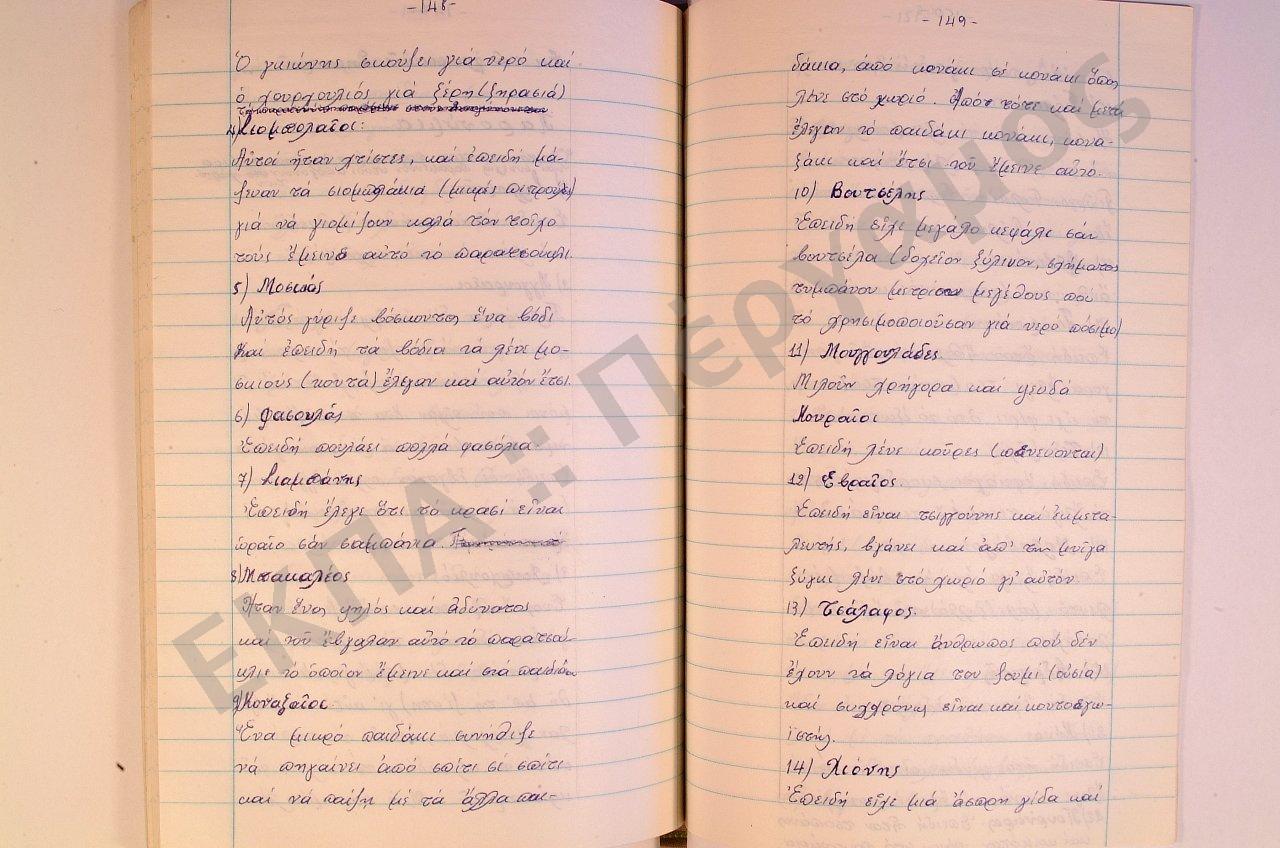 -148-
Ὁ γκιώνης σκούζει γιά νερό καί
ὁ χουρχουλιός γιά ξέρη (ξηρασιά)
4) Σιομπολαῖοι:
Αὐτοί ἦταν χτίστες, καί ἐπειδή μά-
ζευαν τά σιομπολάκια (μικρές πιτρούλες)
γιά νά γιομίζουν καλά τόν τοῖχο
τούς ἔμεινε αὐτό τό παρατσούκλι.
5) Μοσκιός
Αὐτός γύριζε βόσκοντας ἕνα βόδι
καί ἐπειδή τά βόδια τά λένε μο-
σκιούς (κουτά) ἔλεγαν καί αὐτόν ἔτσι.
6) Φασουλάς
Ἐπειδή πουλάει πολλά φασόλια.
7) Σιαμπάνης
Ἐπειδή ἔλεγε ὅτι τό κρασί εἶναι
ὡραῖο σάν σαμπάνια.
8) Μπακαλέος
Ἦταν ἕνας ψηλός καί ἀδύνατος
καί τοῦ ἔβγαλαν αὐτό τό παρατσού-
κλι τό ὁποῖον ἔμεινε καί στά παιδιά
9) Κοναξαῖος.
Ἕνα μικρό παιδάκι συνήθιζε
νά πηγαίνει ἀπό σπίτι σέ σπίτι
καί νά παίζη μέ τά ἄλλα παι-
-149-
δάκια, ἀπό κονάκι σέ κονάκι ὅπως
λένε στό χωριό. Ἀπό τότε καί μετά
ἔλεγαν τό παιδάκι κονάκι, κονα-
ξάκι καί ἔτσι τοῦ ἔμεινε αὐτό.
10) Βουτσέλης
Ἐπειδή εἶχε μεγάλο κεφάλι σάν
βουτσέλα (δοχεῖον ξύλινον, σχήματος
τυμπάνου μετρίου μεγέθους πού
τό χρησιμοποιοῦσαν γιά νερό πόσιμο)
11) Μουγγουλάδες
Μιλοῦν γρήγορα καί ψευδά
Κουραῖοι
Ἐπειδή λένε κοῦρες
12) Ἑβραῖος.
Ἐπειδή εἶναι τσιγγούνης καί ἐκμετα-
λευτής, βγάνει καί ἀπ' τήν μυῖγα
ξύγκι λένε στό χωριό γι' αὐτόν
13) Τσάλαφος.
Ἐπειδή εἶναι ἄνθρωπος πού δέν
ἔχουν τά λόγια του ζουμί (οὐσία)
καί συγχρόνως εἶναι καί κουτοεγω-
ϊστής.
14) Χιόνης
Ἐπειδή εἶχε μιά ἄσπρη γίδα καί
ΕΚΠΑ :: Πέργαμος